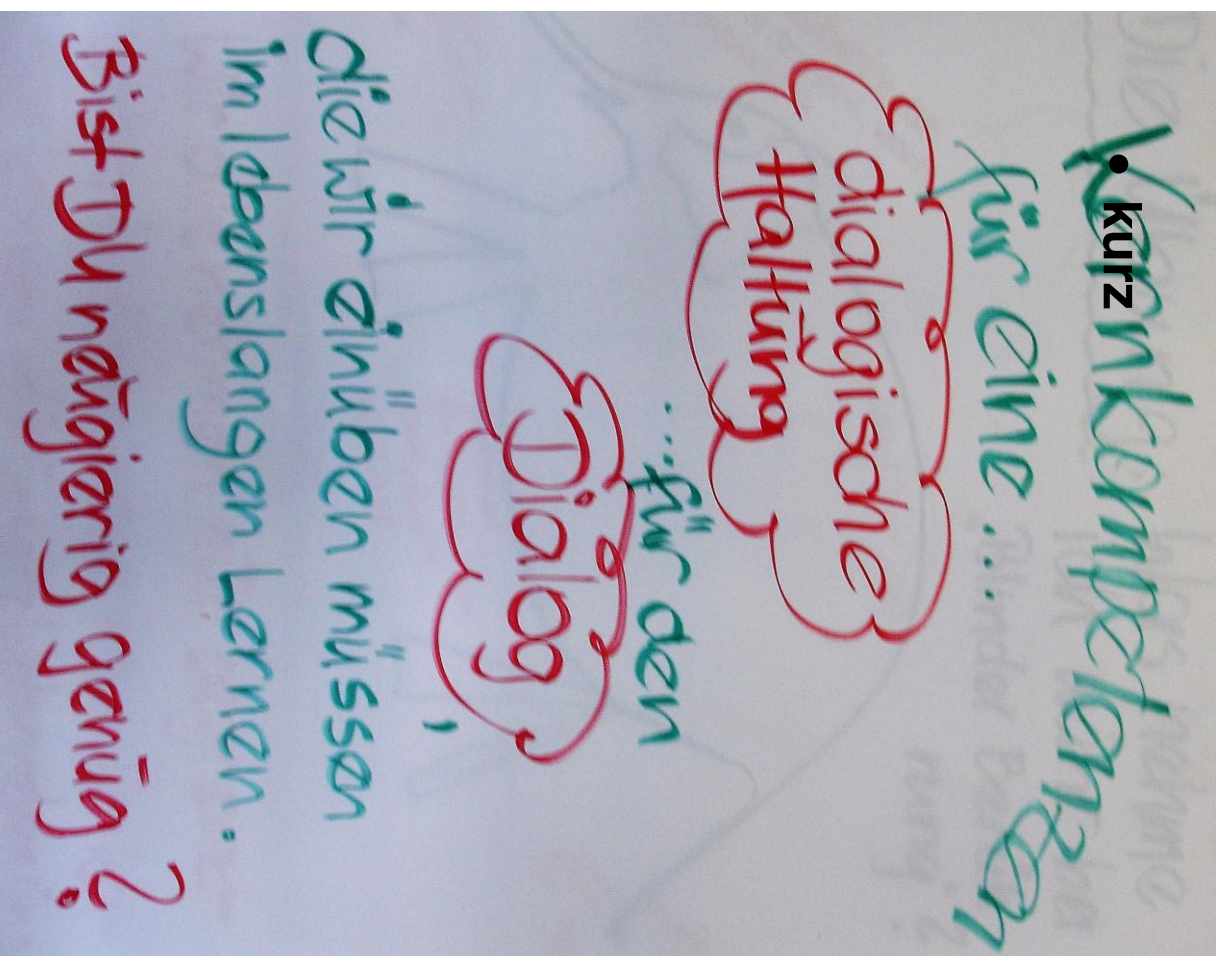 Kernkompetenzen
• kurz
für eine ...
dialogische
Haltung
... für den
Dialog,
die wir einüben müssen
im lebenslangen Lernen.
Bist Du neugierig genug?